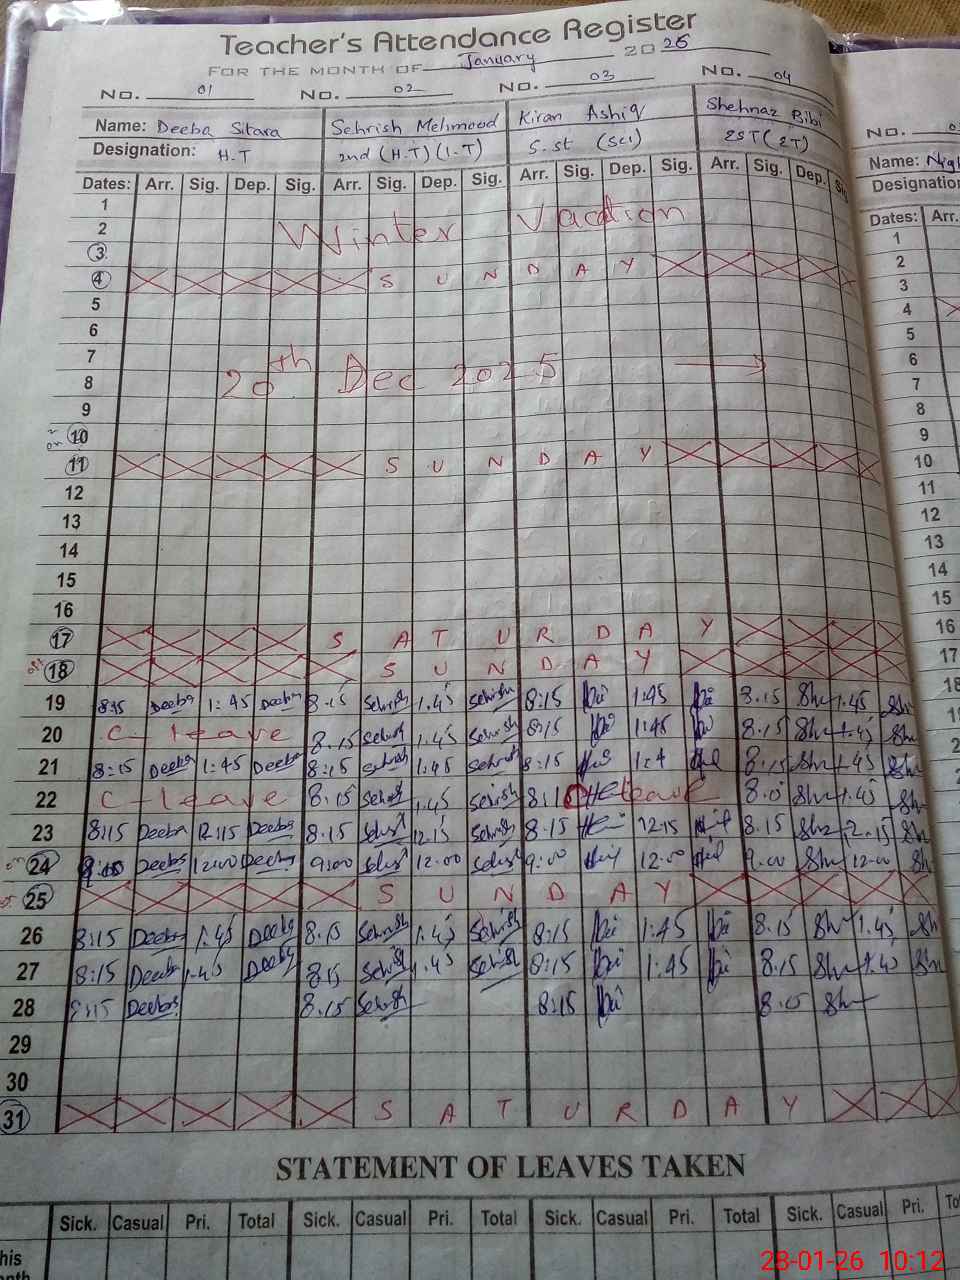 Teacher's Attendance Register
FOR THE MONTH OF January 2026
No. 01 No. 02 No. 03 No. 04
Name: Deeba Sitara Sehrish Mehmood Kiran Ashiq Shehnaz Bibi No.
Designation: H.T 2nd (H.T) (I.T) S.st (Sci) EST (ET) Name:
Designation
Dates: Arr. Sig. Dep. Sig. Arr. Sig. Dep. Sig. Arr. Sig. Dep. Sig. Arr. Sig. Dep. Sig. Dates: Arr.
1 1
2 Winter Vacation 2
3 3
4 S U N D A Y 4
5 5
6 6
7 7
8 20th Dec 2025 8
9 9
10 10
11 S U N D A Y 11
12 12
13 13
14 14
15 15
16 16
17 S A T U R D A Y 17
18 S U N D A Y 18
19 8:15 Deeba 1:45 Deeba 8.15 Sehrish 1.45 Sehrish 8:15 1:45 8.15 Sh 1.45 Sh
20 C-leave 8.15 Sehrish 1.45 Sehrish 8:15 1:45 8.15 Sh 1.45 Sh
21 8:15 Deeba 1:45 Deeba 8:15 Sehrish 1:45 Sehrish 8:15 1:4 8.15 Sh 1.45 Sh
22 C-leave 8.15 Sehrish 1.45 Sehrish 8:1 leave 8. Sh 1.45 Sh
23 8:15 Deeba 12:15 Deeba 8.15 Sehrish 12.15 Sehrish 8.15 12.15 8.15 Sh 2.15 Sh
24 Deeba 12:00 Deeba 9:00 Sehrish 12:00 Sehrish 9:00 12:00 9.00 Sh 12.00 Sh
25 S U N D A Y
26 8:15 Deeba 1:45 Deeba 8.15 Sehrish 1.45 Sehrish 8:15 1:45 8.15 Sh 1.45 Sh
27 8:15 Deeba 1:45 Deeba 8.15 Sehrish 1.45 Sehrish 8:15 1:45 8.15 Sh 1.45 Sh
28 8:15 Deeba 8.15 Sehrish 8:15 8.15 Sh
29
30
31 S A T U R D A Y
STATEMENT OF LEAVES TAKEN
Sick. Casual Pri. Total Sick. Casual Pri. Total Sick. Casual Pri. Total Sick. Casual Pri. To
28-01-26 10:12